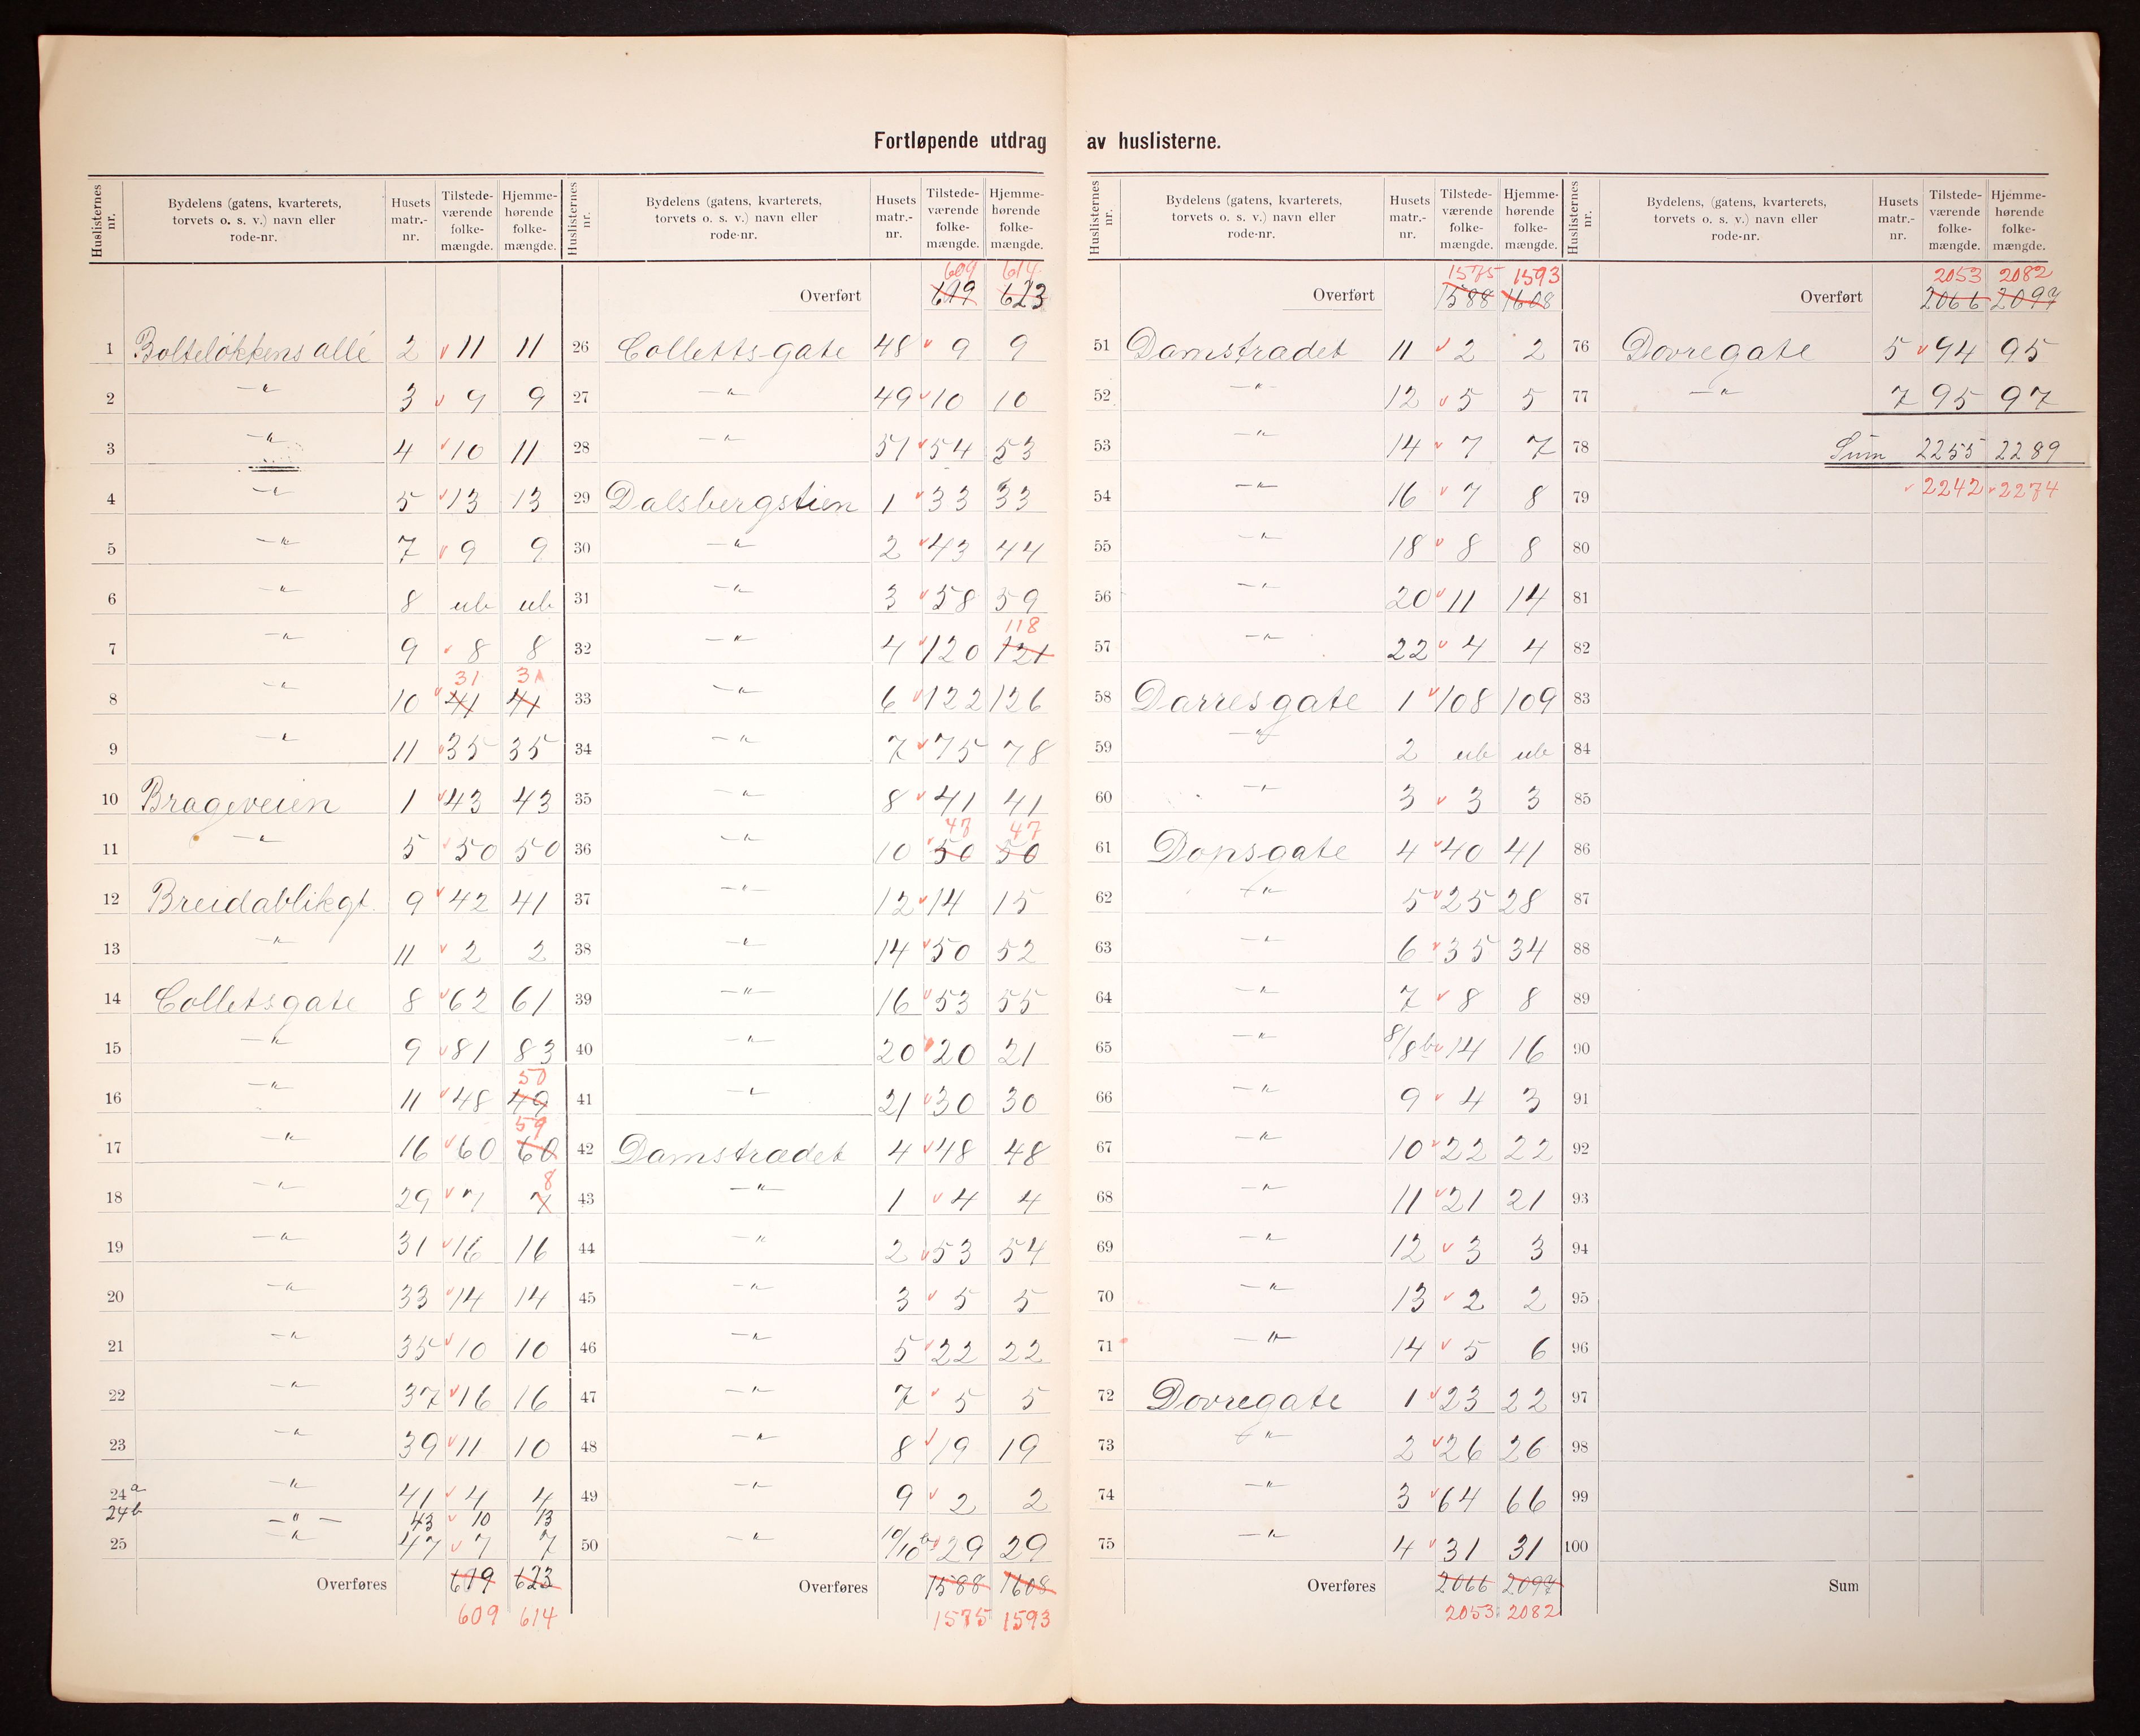 Fortløpende utdrag av huslisterne.
Huslisternes nr. | Bydelens (gatens, kvarterets, torvets o. s. v.) navn eller rode-nr. | Husets matr.-nr. | Tilstedeværende folkemængde. | Hjemmehørende folkemængde.
1 Bolteløkkens allé 2 v 11 11
2 —"— 3 v 9 9
3 —"— 4 v 10 11
4 —"— 5 v 13 13
5 —"— 7 v 9 9
6 —"— 8 ub ub
7 —"— 9 v 8 8
31 31
8 —"— 10 v 41 41
9 —"— 11 v 35 35
10 Brageveien 1 v 43 43
11 —"— 5 v 50 50
12 Breidablikgt. 9 v 42 41
13 —"— 11 v 2 2
14 Colletsgate 8 v 62 61
15 —"— 9 v 81 83
50
16 —"— 11 v 48 49
59
17 —"— 16 v 60 60
8
18 —"— 29 v 7 7
19 —"— 31 v 16 16
20 —"— 33 v 14 14
21 —"— 35 v 10 10
22 —"— 37 v 16 16
23 —"— 39 v 11 10
24a —"— 41 v 4 4
24b —"— 43 v 10 13
25 —"— 47 v 7 7
Overføres 619 623
609 614
Huslisternes nr. | Bydelens (gatens, kvarterets, torvets o. s. v.) navn eller rode-nr. | Husets matr.-nr. | Tilstedeværende folkemængde. | Hjemmehørende folkemængde.
609 614
Overført 619 623
26 Colletts-gate 48 v 9 9
27 —"— 49 v 10 10
28 —"— 51 v 54 53
29 Dalsbergstien 1 v 33 33
30 —"— 2 v 43 44
31 —"— 3 v 58 59
118
32 —"— 4 v 120 121
33 —"— 6 v 122 126
34 —"— 7 v 75 78
35 —"— 8 v 41 41
47 47
36 —"— 10 v 50 50
37 —"— 12 v 14 15
38 —"— 14 v 50 52
39 —"— 16 v 53 55
40 —"— 20 v 20 21
41 —"— 21 v 30 30
42 Damstrædet 4 v 48 48
43 —"— 1 v 4 4
44 —"— 2 v 53 54
45 —"— 3 v 5 5
46 —"— 5 v 22 22
47 —"— 7 v 5 5
48 —"— 8 v 19 19
49 —"— 9 v 2 2
50 —"— 10/10b v 29 29
Overføres 1588 1608
1575 1593
Huslisternes nr. | Bydelens (gatens, kvarterets, torvets o. s. v.) navn eller rode-nr. | Husets matr.-nr. | Tilstedeværende folkemængde. | Hjemmehørende folkemængde.
1575 1593
Overført 1588 1608
51 Damstrædet 11 v 2 2
52 —"— 12 v 5 5
53 —"— 14 v 7 7
54 —"— 16 v 7 8
55 —"— 18 v 8 8
56 —"— 20 v 11 14
57 —"— 22 v 4 4
58 Darresgate 1 v 108 109
59 —"— 2 ub ub
60 —"— 3 v 3 3
61 Dopsgate 4 v 40 41
62 —"— 5 v 25 28
63 —"— 6 v 35 34
64 —"— 7 v 8 8
65 —"— 8/8b v 14 16
66 —"— 9 v 4 3
67 —"— 10 v 22 22
68 —"— 11 v 21 21
69 —"— 12 v 3 3
70 —"— 13 v 2 2
71 —"— 14 v 5 6
72 Dovregate 1 v 23 22
73 —"— 2 v 26 26
74 —"— 3 v 64 66
75 —"— 4 v 31 31
Overføres 2066 2097
2053 2082
Huslisternes nr. | Bydelens, (gatens, kvarterets, torvets o. s. v.) navn eller rode-nr. | Husets matr.-nr. | Tilstedeværende folkemængde. | Hjemmehørende folkemængde.
2053 2082
Overført 2066 2097
76 Dovregate 5 v 94 95
77 —"— 7 95 97
78 Sum 2255 2289
79 v 2242 v 2274
80
81
82
83
84
85
86
87
88
89
90
91
92
93
94
95
96
97
98
99
100
Sum